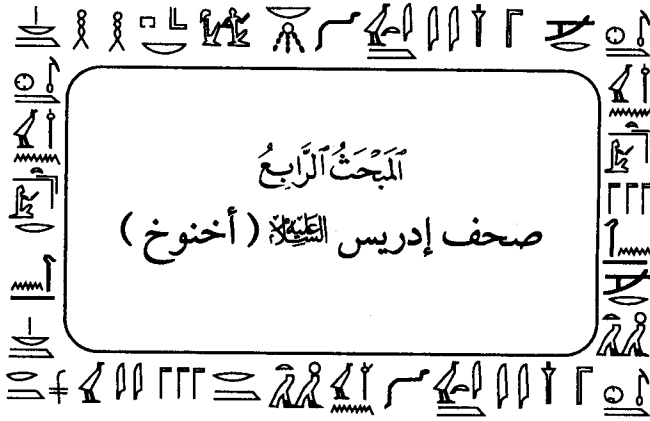 المَبْحَثُ الرَّابِعُ
صحف إدريس عليه السلام ( أخنوخ )